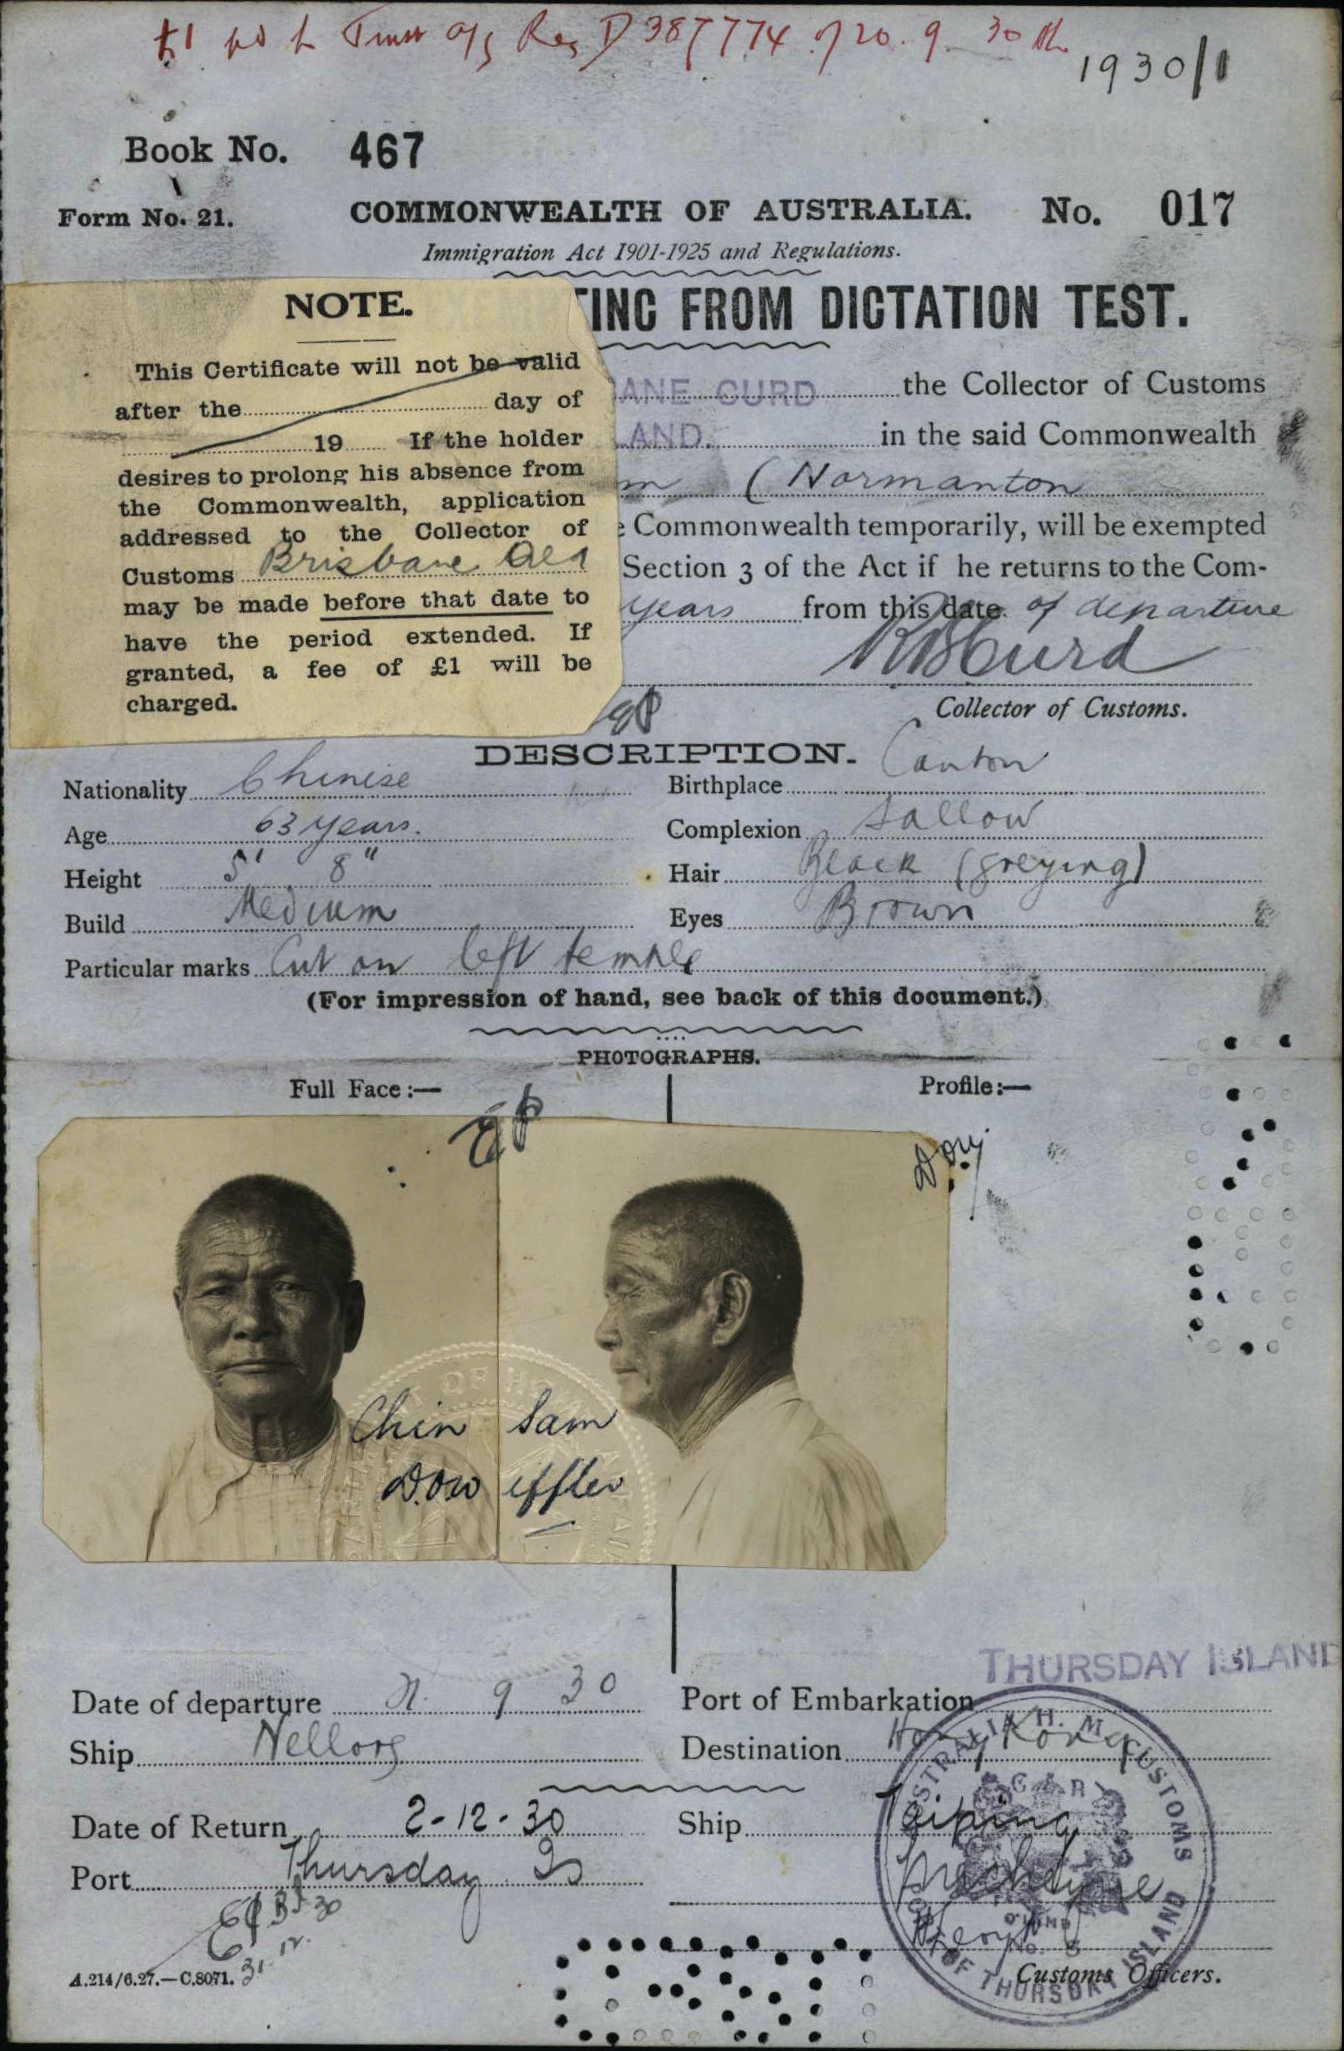 £1 pd to Trust a/c Rec D 387774 of 20.9.30
1930/1
Book No. 467
Form No. 21.
COMMONWEALTH OF AUSTRALIA.
No. 017
Immigration Act 1901-1925 and Regulations.
TING FROM DICTATION TEST.
NOTE.
This Certificate will not be valid
after the day of
19 If the holder
desires to prolong his absence from
the Commonwealth, application
addressed to the Collector of
Customs Brisbane Qld
may be made before that date to
have the period extended. If
granted, a fee of £1 will be
charged.
ANE CURD the Collector of Customs
LAND. in the said Commonwealth
m (Normanton
Commonwealth temporarily, will be exempted
Section 3 of the Act if he returns to the Com-
years from this date of departure
Curd
Collector of Customs.
DESCRIPTION.
Nationality Chinese
Birthplace Canton
Age 63 years.
Complexion Sallow
Height 5' 8"
Hair Black (greying)
Build Medium
Eyes Brown
Particular marks Cut on left temple
(For impression of hand, see back of this document.)
PHOTOGRAPHS.
Full Face:—
Profile:—
Chin Sam
Date of departure 9 30
Port of Embarkation THURSDAY ISLAND
Ship Nellore
Destination Hong Kong
Date of Return 2-12-30
Ship Taiping
Port Thursday Is
AUSTRALIA H. M. CUSTOMS
G R
No. 8
PORT OF THURSDAY ISLAND
Customs Officers.
A.214/6.27.—C.8071.